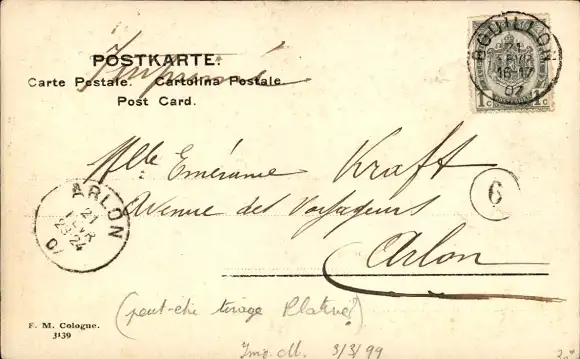 POSTKARTE.
Imprimé
Carte Postale. Cartolina Postale.
Post Card.
BOUILLON
21
16-17
07
1c 1c
Mlle Emérance Kraft
Avenue des Voyageurs
Arlon
6
ARLON
21
FEVR
23-24
07
(peut-être tirage Platine?)
F. M. Cologne.
3139
Imp. M. 3/3/99